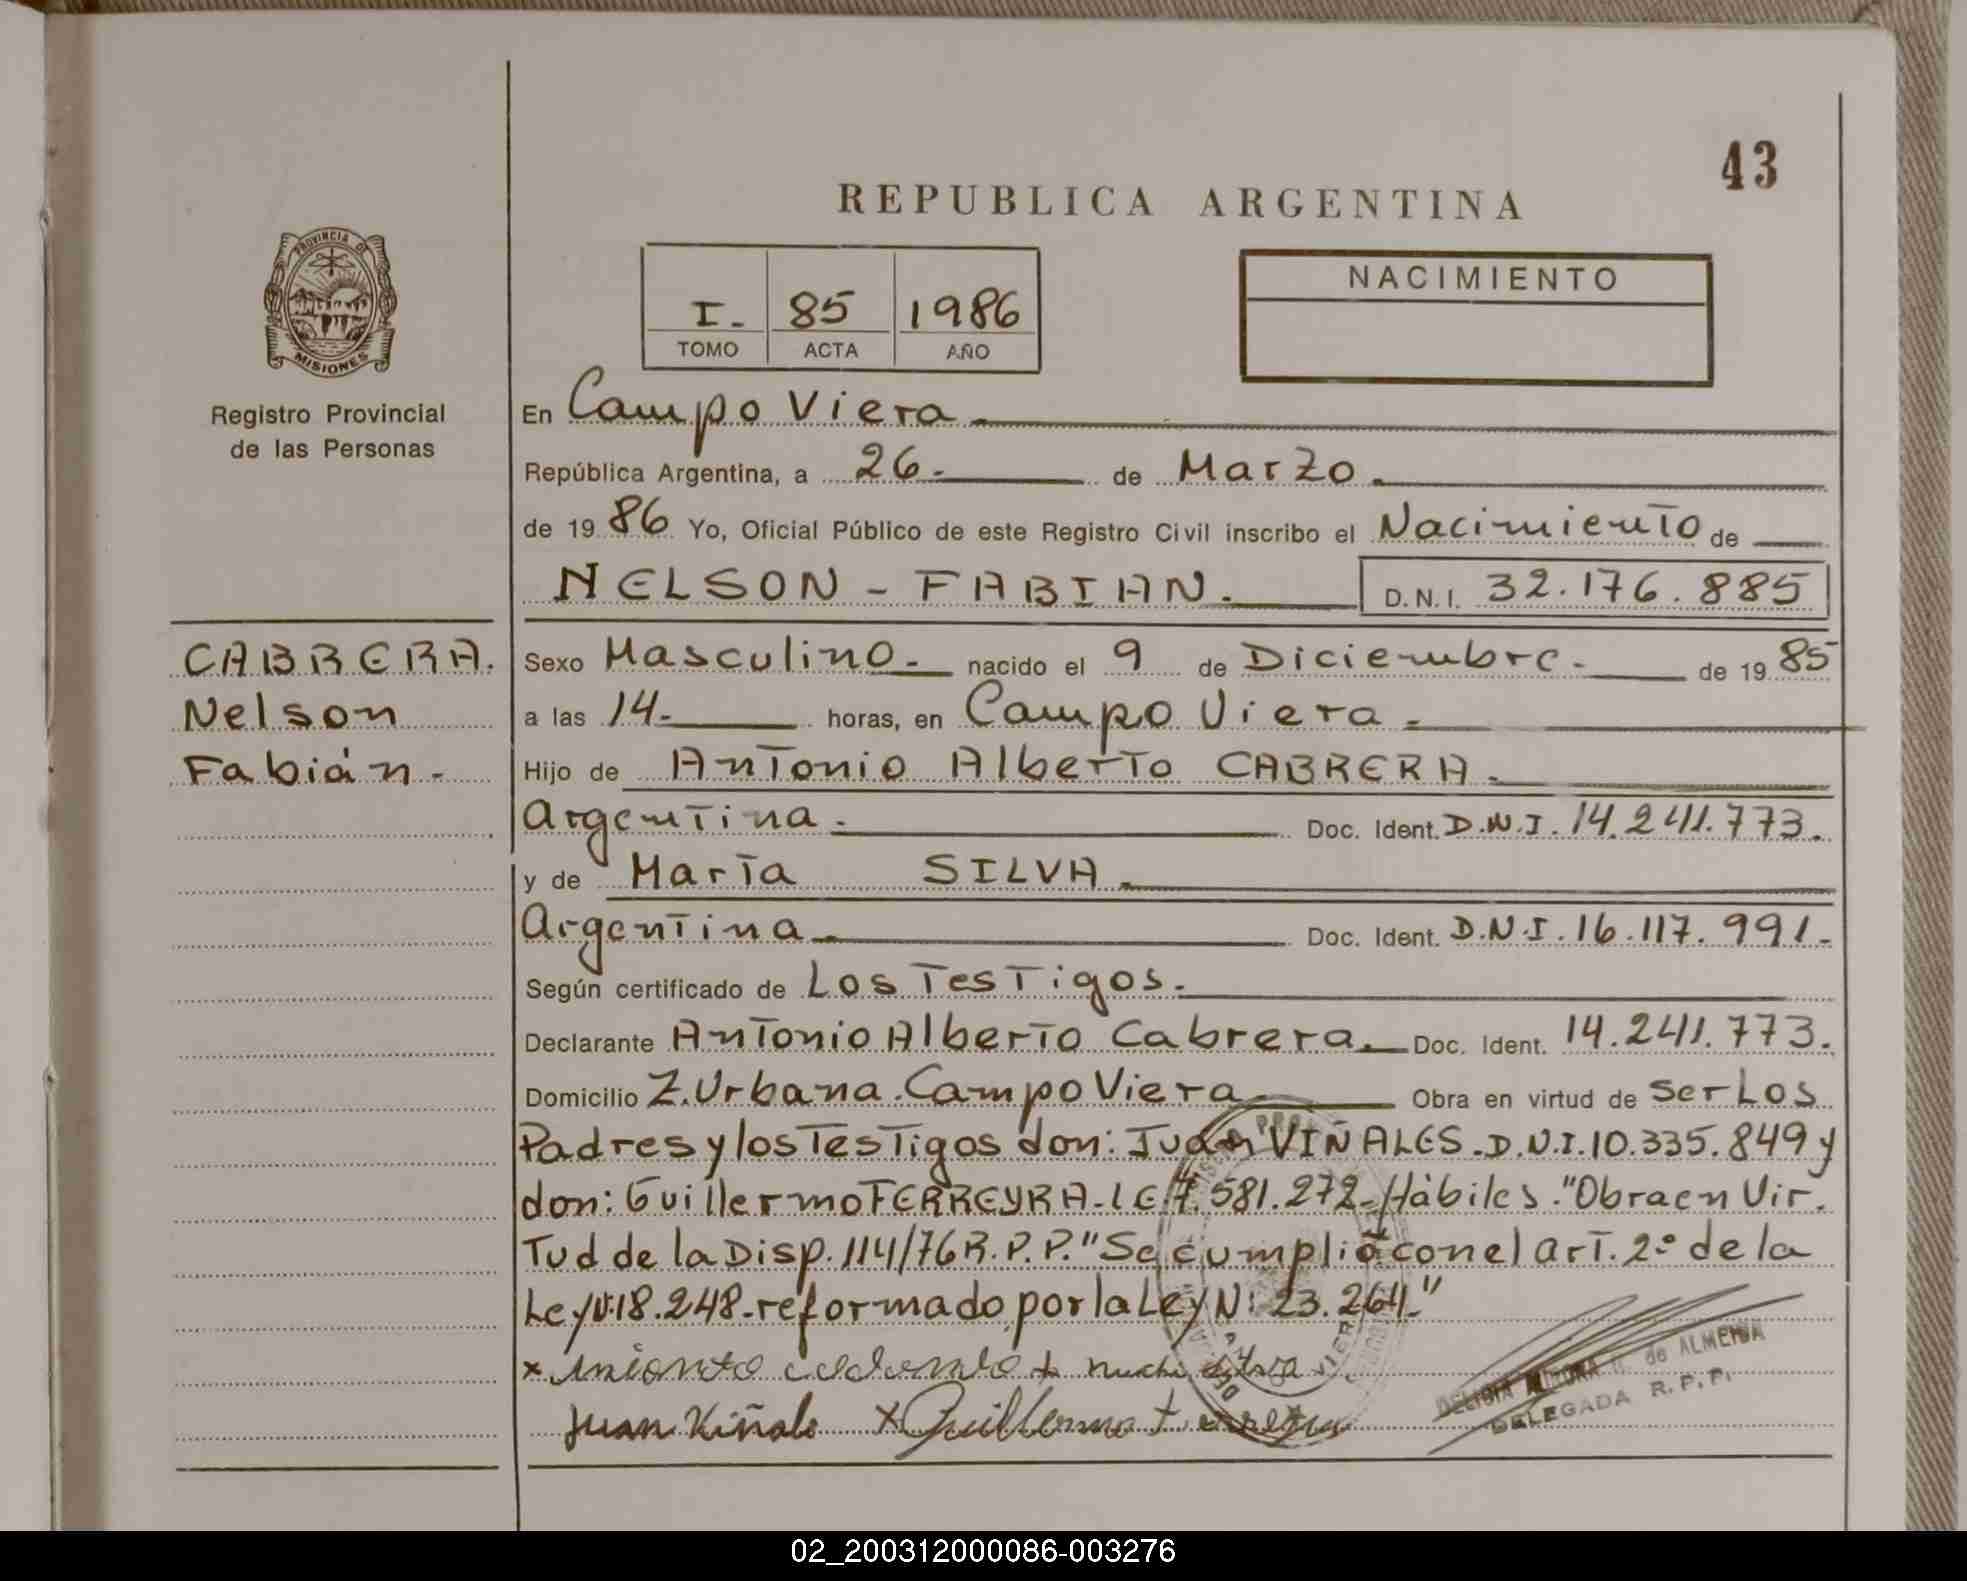 43
REPUBLICA ARGENTINA
PROVINCIA DE
MISIONES
Registro Provincial
de las Personas
I.- 85 1986
TOMO ACTA AÑO
NACIMIENTO
En Campo Viera.
República Argentina, a 26.- de Marzo.
de 1986 Yo, Oficial Público de este Registro Civil inscribo el Nacimiento de
NELSON - FABIAN. D.N.I. 32.176.885
CABRERA.
Nelson
Fabián.-
Sexo Masculino.- nacido el 9 de Diciembre.- de 1985
a las 14.- horas, en Campo Viera.-
Hijo de Antonio Alberto CABRERA.-
Argentina.- Doc. Ident. D.N.I. 14.241.773.
y de María SILVA.-
Argentina.- Doc. Ident. D.N.I. 16.117.991.-
Según certificado de Los Testigos.-
Declarante Antonio Alberto Cabrera.- Doc. Ident. 14.241.773.
Domicilio Z. Urbana. Campo Viera.- Obra en virtud de ser Los
Padres y los Testigos don: Juan VIÑALES. D.N.I. 10.335.849 y
don: Guillermo FERREYRA - L E. 7.581.272 - Hábiles. "Obra en Vir.
Tud de la Disp. 114/76 R.P.P." Se cumplió con el art. 2º de la
Ley Nº 18.248.- reformado por la Ley Nº 23.264."
Juan Viñale x Guillermo Ferreyra
de ALMEIDA
DELEGADA R.P.P.
02_200312000086-003276